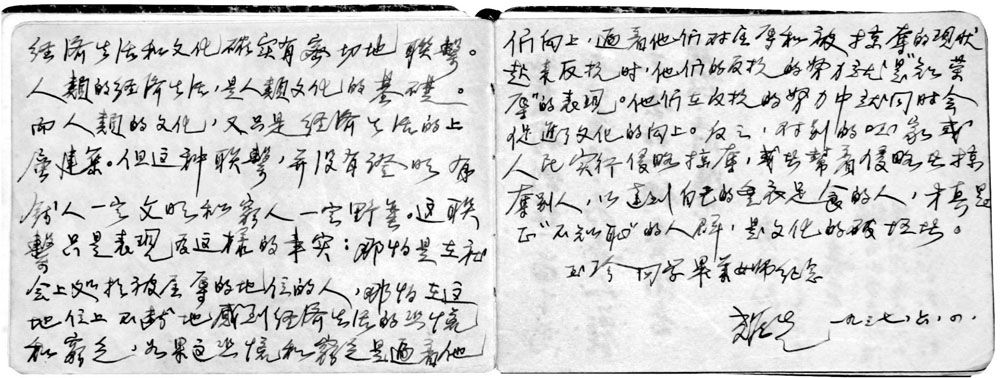 经济生活和文化确实有密切地联繫。
人類的经济生活,是人類文化的基礎。
而人類的文化,又只是经济生活的上
層建築。但这种联繫,并没有證明有
錢人一定文明和窮人一定野蛮。这联
繫只是表现在这樣的事实:那怕是在社
会上处於被压辱的地位的人,那怕在这
地位上不断地感到经济生活的恐慌
和窮乏,如果这恐慌和窮乏是逼着他
们向上,逼着他们对压辱和被掠奪的现状
起来反抗时,他们的反抗的努力就是"知榮
辱"的表现。他们在反抗的努力中就同时会
促進了文化的向上。反之,对别的国家或
人民实行侵略掠奪,或者幫着侵略者掠
奪别人,以達到自己的豐衣足食的人,才真是
正"不知恥"的人群,是文化的破坏者。
玉珍同学畢業女师纪念
一九三七,六,